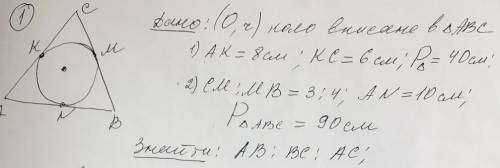 1
C
Дано: (O, r) коло вписане в △ABC
K
M
1) AK = 8см; KC = 6см; P△ = 40см.
2) CM : MB = 3 : 4; AN = 10см;
A
N
B
P△ABC = 90см
Знайти: AB; BC; AC;